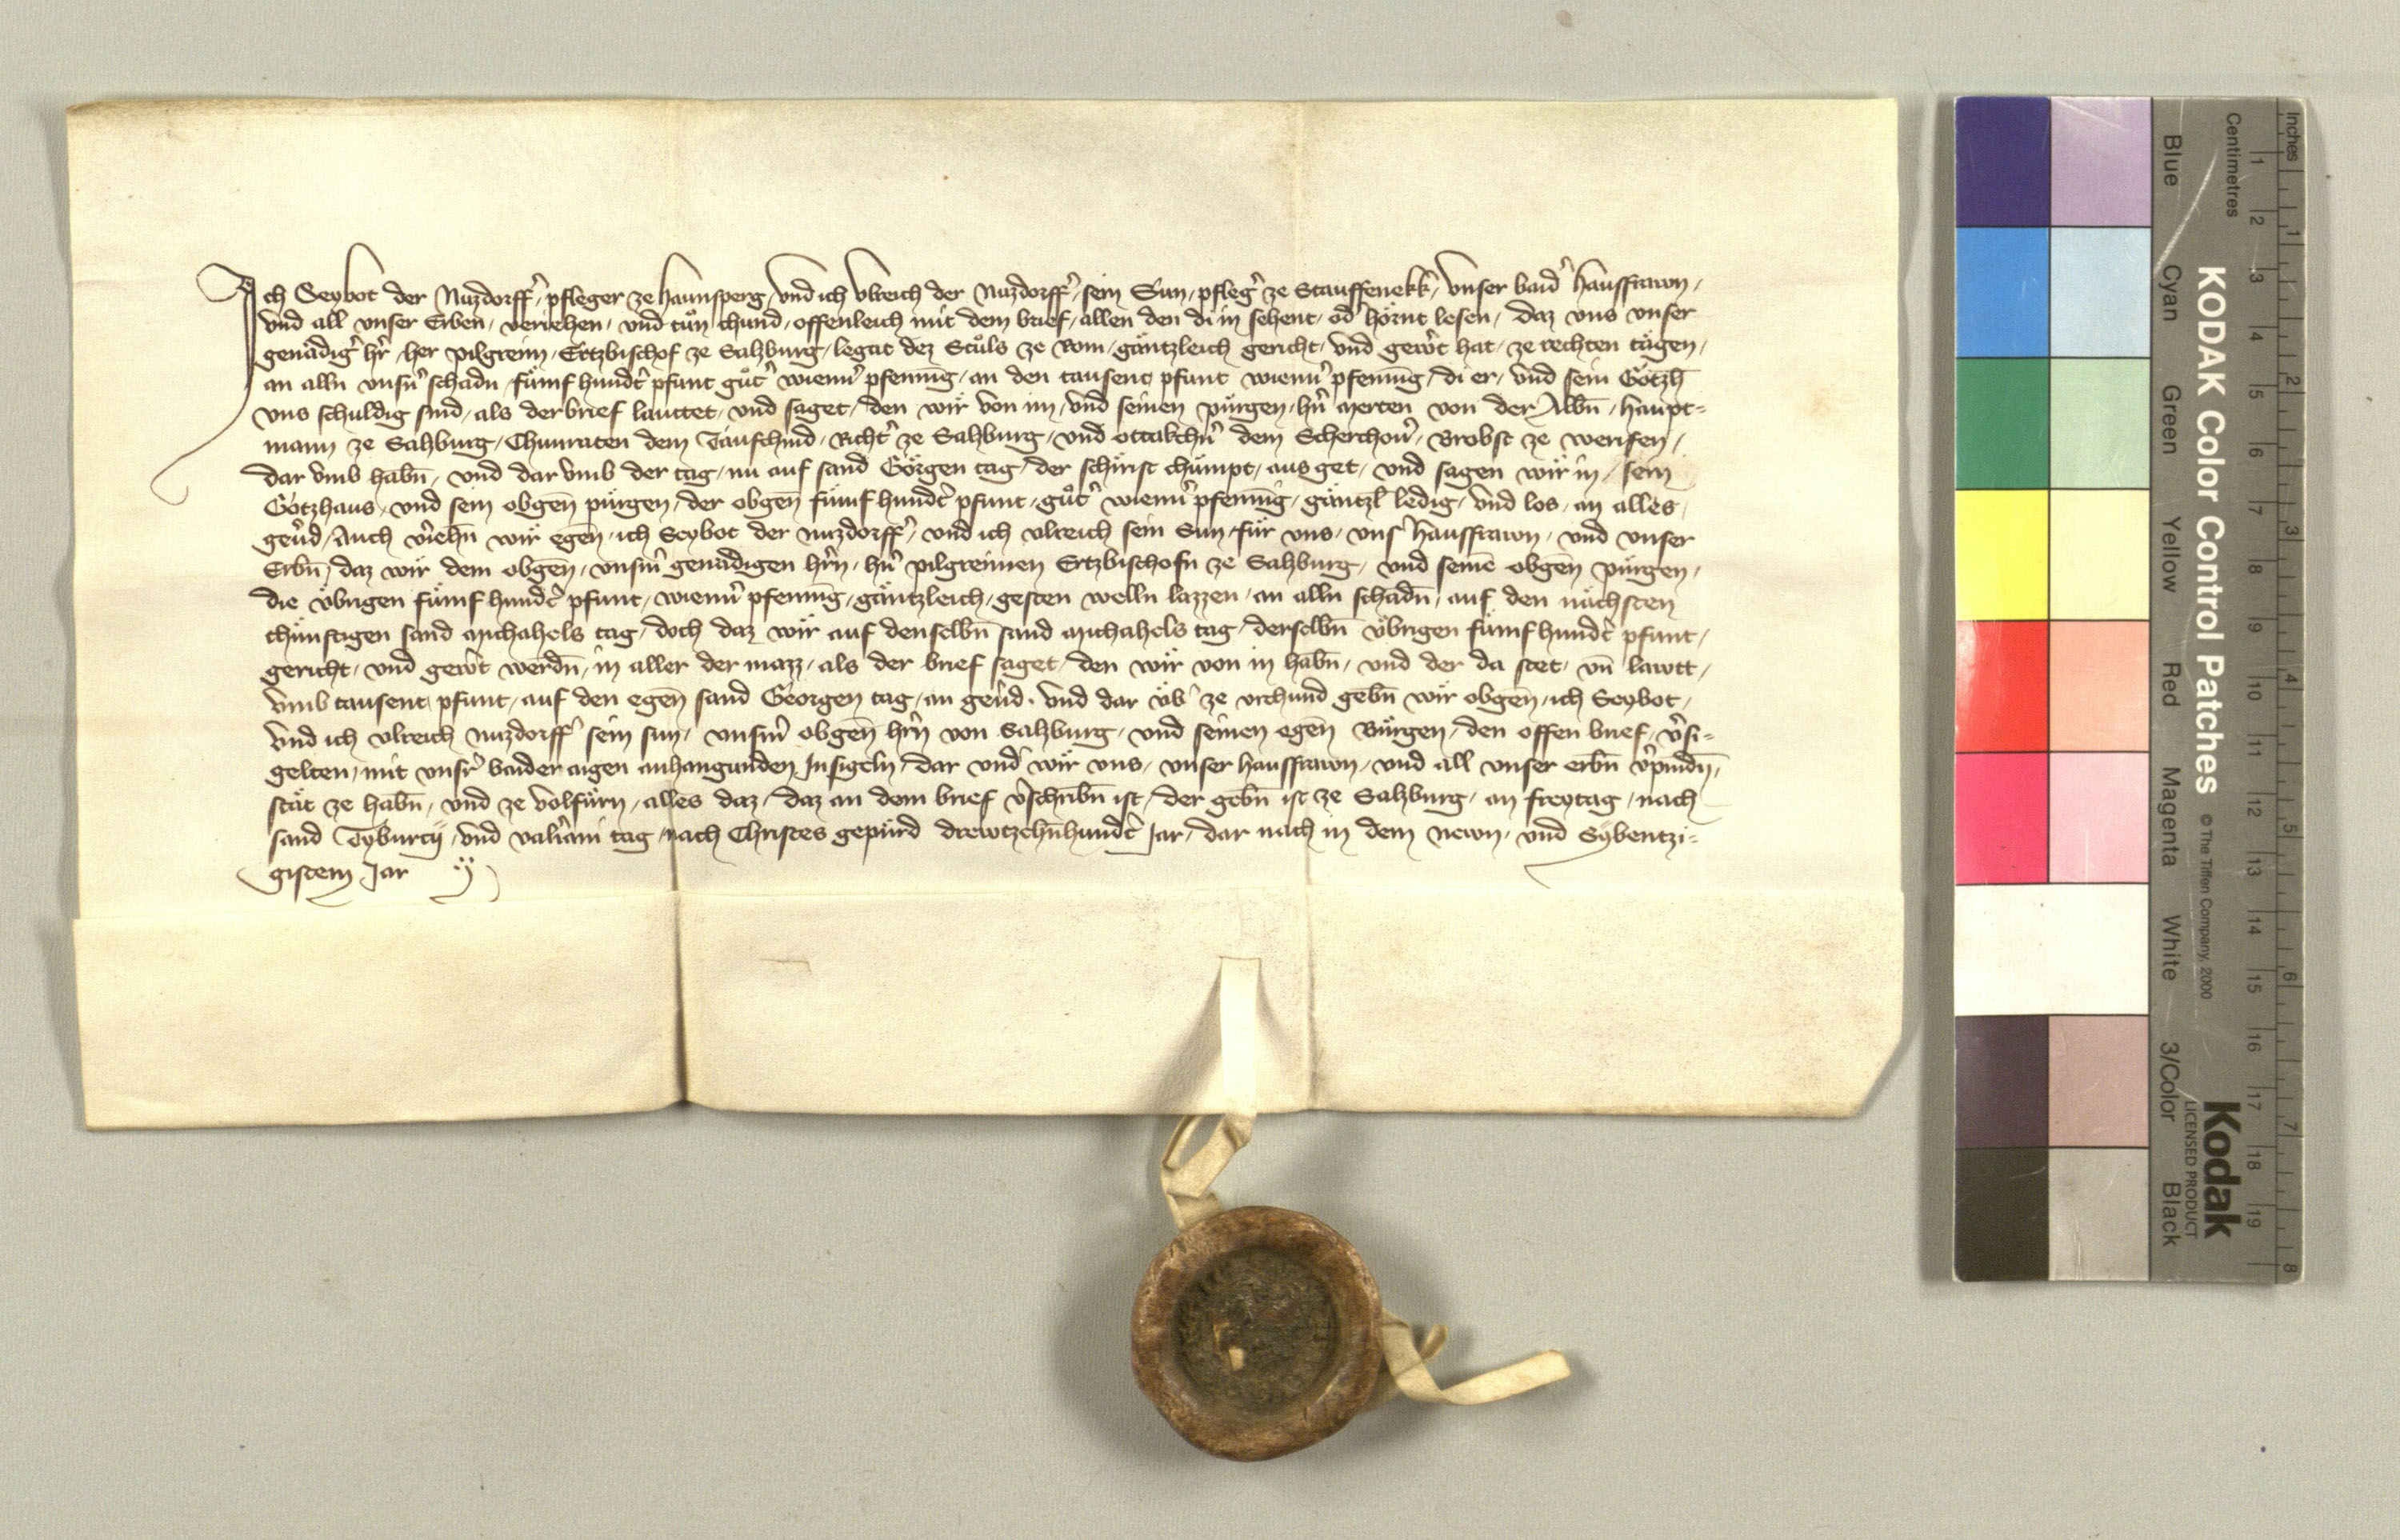 Ich Seybot der Nuzdorffʾ, pfleger ze haunsperg, vnd ich vlreich der Nuzdorffʾ, sein Sun, pflegʾ ze Stauffenekkʾ, vnser baidʾ hausfrawn,
vnd all vnser Erben, veriehen, vnd tůn chund, offenleich mit dem brief, allen den di in sehent, odʾ hörnt lesen, daz vns vnser
genädigʾ hʾr, her pilgreim, Ertzbischof ze Salzburg, legat dez Stůls ze Rom, gäntzleich gericht, vnd gewʾt hat, ze rechten tägen,
an alln vnsʾn schadn, fümf hundʾt pfunt gůtʾ wiennʾ pfenning, an den tausent pfunt wiennʾ pfenning, di er, vnd sein Gotzh̄
vns schuldig sind, als der brief lauttet, vnd saget, den wir von im, vnd seinen pürgen, hʾn Merten von der Albn̄, haupt-
mann ze Salzburg, Chunraten dem Taufchind, Richtʾ ze Salzburg, vnd ottakchʾn dem Scherchouʾ, Brobst ze werifen,
dar vmb habn̄, vnd dar vmb der tag, nu auf sand Görgen tag, der schirist chümpt, aus get, vnd sagen wir in, sein
Gotzhaus, vnd sein obgen̄ pürgen, der obgen̄ fümf hundʾt pfunt, gůtʾ wiennʾ pfenning, gäntzl̄ ledig, vnd los, an alles,
geuʾd, Auch vʾiehn̄ wir egen̄, ich Seybot der nuzdorffʾ, vnd ich vlreich sein Sun, für vns, vnsʾ hausfrawn, vnd vnser
Erbn̄, daz wir dem obgen̄, vnsʾm genädigen hʾrn, hʾn pilgreimen Ertzbischofn ze Salzburg, vnd seinē obgen̄ pürgen,
die übrigen fümf hundʾt pfunt, wiennʾ pfenning, gäntzleich, gesten welln lazzen, an alln schadn̄, auf den nächsten
chünftigen sand Michahels tag, doch daz wir auf denselbn̄ sand Michahels tag, derselbn̄ übrigen fümf hundʾt pfunt,
gericht, vnd gewʾt werdn̄, in aller der mazz, als der brief saget, den wir von in habn̄, vnd der da stet, vn̄ lawtt,
vmb tausent pfunt, auf den egen̄ sand Georgen tag, an geuʾd. vnd dar übʾ ze vrchund gebn̄ wir obgen̄, ich Seybot,
vnd ich vlreich nuzdorffʾ sein sun, vnsʾm obgen̄ hʾrn von Salzburg, vnd seinen egen̄ Bürgen, den offen brief, vʾsi-
gelten, mit vnsʾr baider aigen anhangunden Insigeln, dar vndʾ wir vns, vnser hausfrawn, vnd all vnser erbn̄ vʾpindn̄,
stät ze habn̄, vnd ze volfürn, alles daz, daz an dem brief vʾschribn̄ ist, der gebn̄ ist ze Salzburg, an freytag, nach
sand Tyburcij, vnd valʾiani tag, nach Christes gepürd drewtzehn̄hundʾt Jar, dar nach in dem newn, vnd Sybentzi-
gistem Jar
KODAK Color Control Patches
© The Tiffen Company, 2000
Kodak
LICENSED PRODUCT
Inches
1 2 3 4 5 6 7 8
Centimetres
1 2 3 4 5 6 7 8 9 10 11 12 13 14 15 16 17 18 19
Blue
Cyan
Green
Yellow
Red
Magenta
White
3/Color
Black